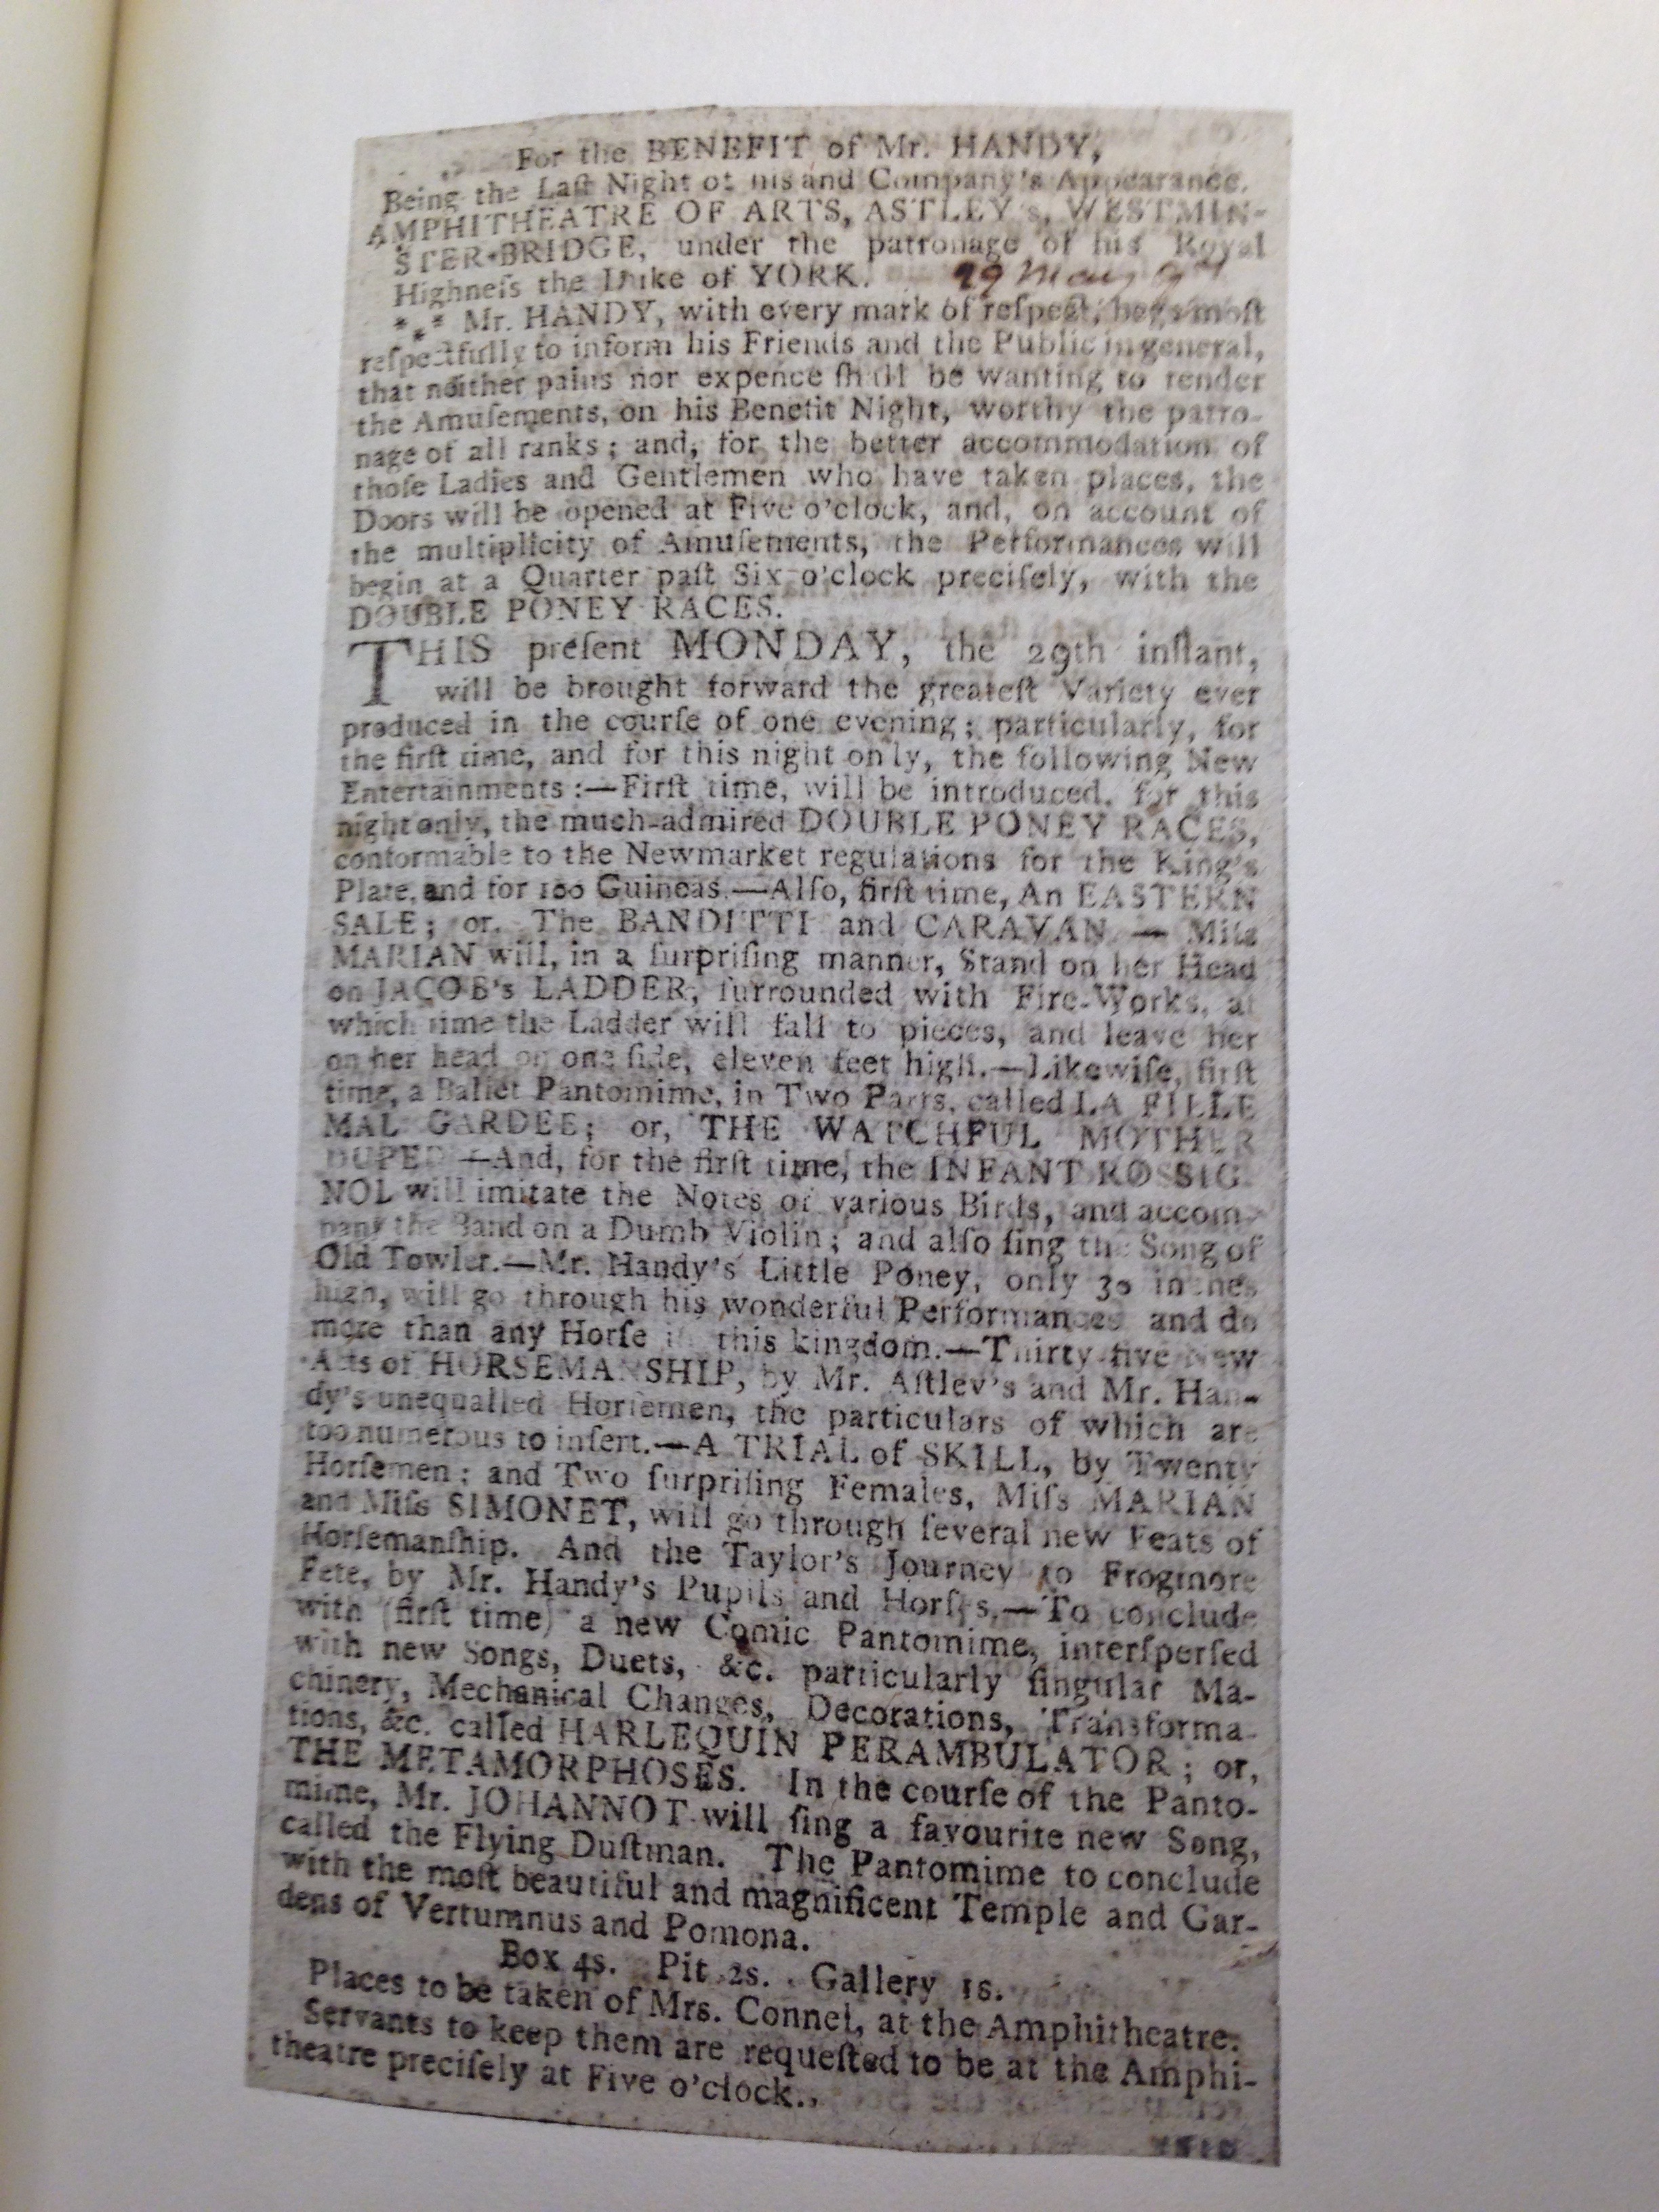 For the BENEFIT of Mr. HANDY,
Being the Laſt Night of his and Company's Appearance.
AMPHITHEATRE OF ARTS, ASTLEY's, WESTMIN-
STER-BRIDGE, under the patronage of his Royal
Highneſs the Duke of YORK. 29 May
*⁎* Mr. HANDY, with every mark of reſpect, begs moſt
reſpectfully to inform his Friends and the Public in general,
that neither pains nor expence ſhall be wanting to render
the Amuſements, on his Benefit Night, worthy the patro-
nage of all ranks; and, for the better accommodation of
thoſe Ladies and Gentlemen who have taken places, the
Doors will be opened at Five o'clock, and, on account of
the multiplicity of Amuſements, the Performances will
begin at a Quarter paſt Six o'clock preciſely, with the
DOUBLE PONEY RACES.
THIS preſent MONDAY, the 29th inſtant,
will be brought forward the greateſt Variety ever
produced in the courſe of one evening; particularly, for
the firſt time, and for this night only, the following New
Entertainments:—Firſt time, will be introduced, for this
night only, the much-admired DOUBLE PONEY RACES,
conformable to the Newmarket regulations for the King's
Plate, and for 100 Guineas.—Alſo, firſt time, An EASTERN
SALE; or, The BANDITTI and CARAVAN.— Miſs
MARIAN will, in a ſurpriſing manner, Stand on her Head
on JACOB's LADDER, ſurrounded with Fire-Works, at
which time the Ladder will fall to pieces, and leave her
on her head on one ſide, eleven feet high.—Likewiſe, firſt
time, a Ballet Pantomime, in Two Parts, called LA FILLE
MAL GARDEE; or, THE WATCHFUL MOTHER
DUPED.—And, for the firſt time, the INFANT ROSSIG-
NOL will imitate the Notes of various Birds, and accom-
pany the Band on a Dumb Violin; and alſo ſing the Song of
Old Towler.—Mr. Handy's Little Poney, only 30 inches
high, will go through his wonderful Performances and do
more than any Horſe in this kingdom.—Thirty-five New
Acts of HORSEMANSHIP, by Mr. Aſtley's and Mr. Han-
dy's unequalled Horſemen, the particulars of which are
too numerous to inſert.—A TRIAL of SKILL, by Twenty
Horſemen; and Two ſurpriſing Females, Miſs MARIAN
and Miſs SIMONET, will go through ſeveral new Feats of
Horſemanſhip. And the Taylor's Journey to Frogmore
Fete, by Mr. Handy's Pupils and Horſes.—To conclude
with (firſt time) a new Comic Pantomime, interſperſed
with new Songs, Duets, &c. particularly ſingular Ma-
chinery, Mechanical Changes, Decorations, Transforma-
tions, &c. called HARLEQUIN PERAMBULATOR; or,
THE METAMORPHOSES. In the courſe of the Panto-
mime, Mr. JOHANNOT will ſing a favourite new Song,
called the Flying Duſtman. The Pantomime to conclude
with the moſt beautiful and magnificent Temple and Gar-
dens of Vertumnus and Pomona.
Box 4s. Pit 2s. Gallery 1s.
Places to be taken of Mrs. Connel, at the Amphitheatre.
Servants to keep them are requeſted to be at the Amphi-
theatre preciſely at Five o'clock.